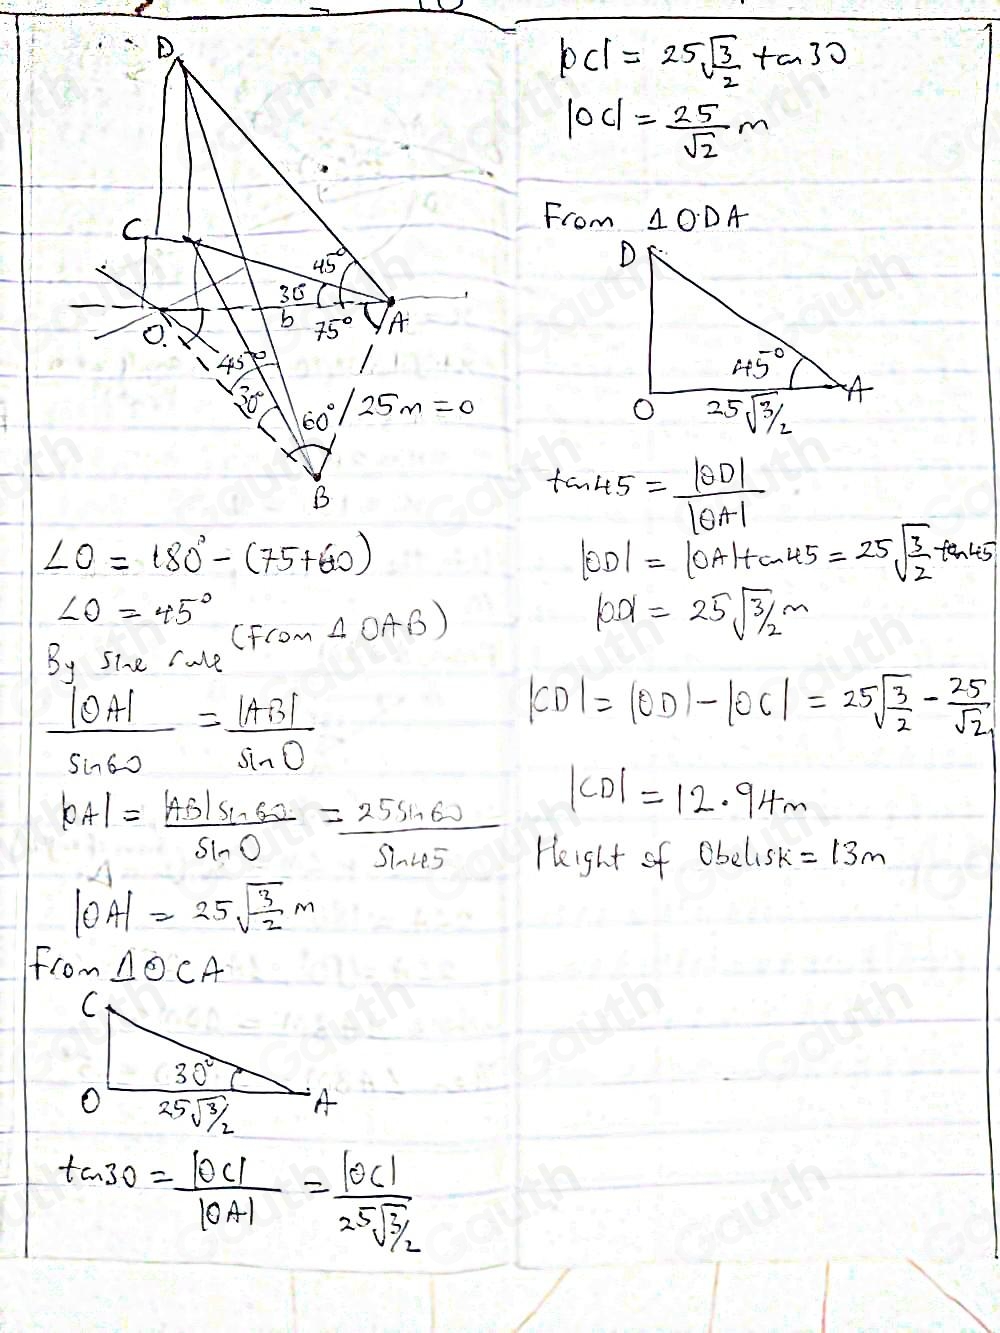 D
C
45°
30°
b
75°
A
O
45°
30°
60°
25m = 0
B
∠O = 180° - (75+60)
∠O = 45°
(From Δ OAB)
By sine rule
|OA|/sin60 = |AB|/sin O
|OA| = |AB|sin60/sin O = 25sin60/sin45
|OA| = 25√3/2 m
From ΔOCA
C
30°
O
25√3/2
A
tan30 = |OC|/|OA| = |OC|/25√3/2
|OC| = 25√3/2 tan30
|OC| = 25/√2 m
From ΔODA
D
45°
O
25√3/2
A
tan45 = |OD|/|OA|
|OD| = |OA|tan45 = 25√3/2 tan45
|OD| = 25√3/2 m
|CD| = |OD| - |OC| = 25√3/2 - 25/√2
|CD| = 12.94m
Height of Obelisk = 13m